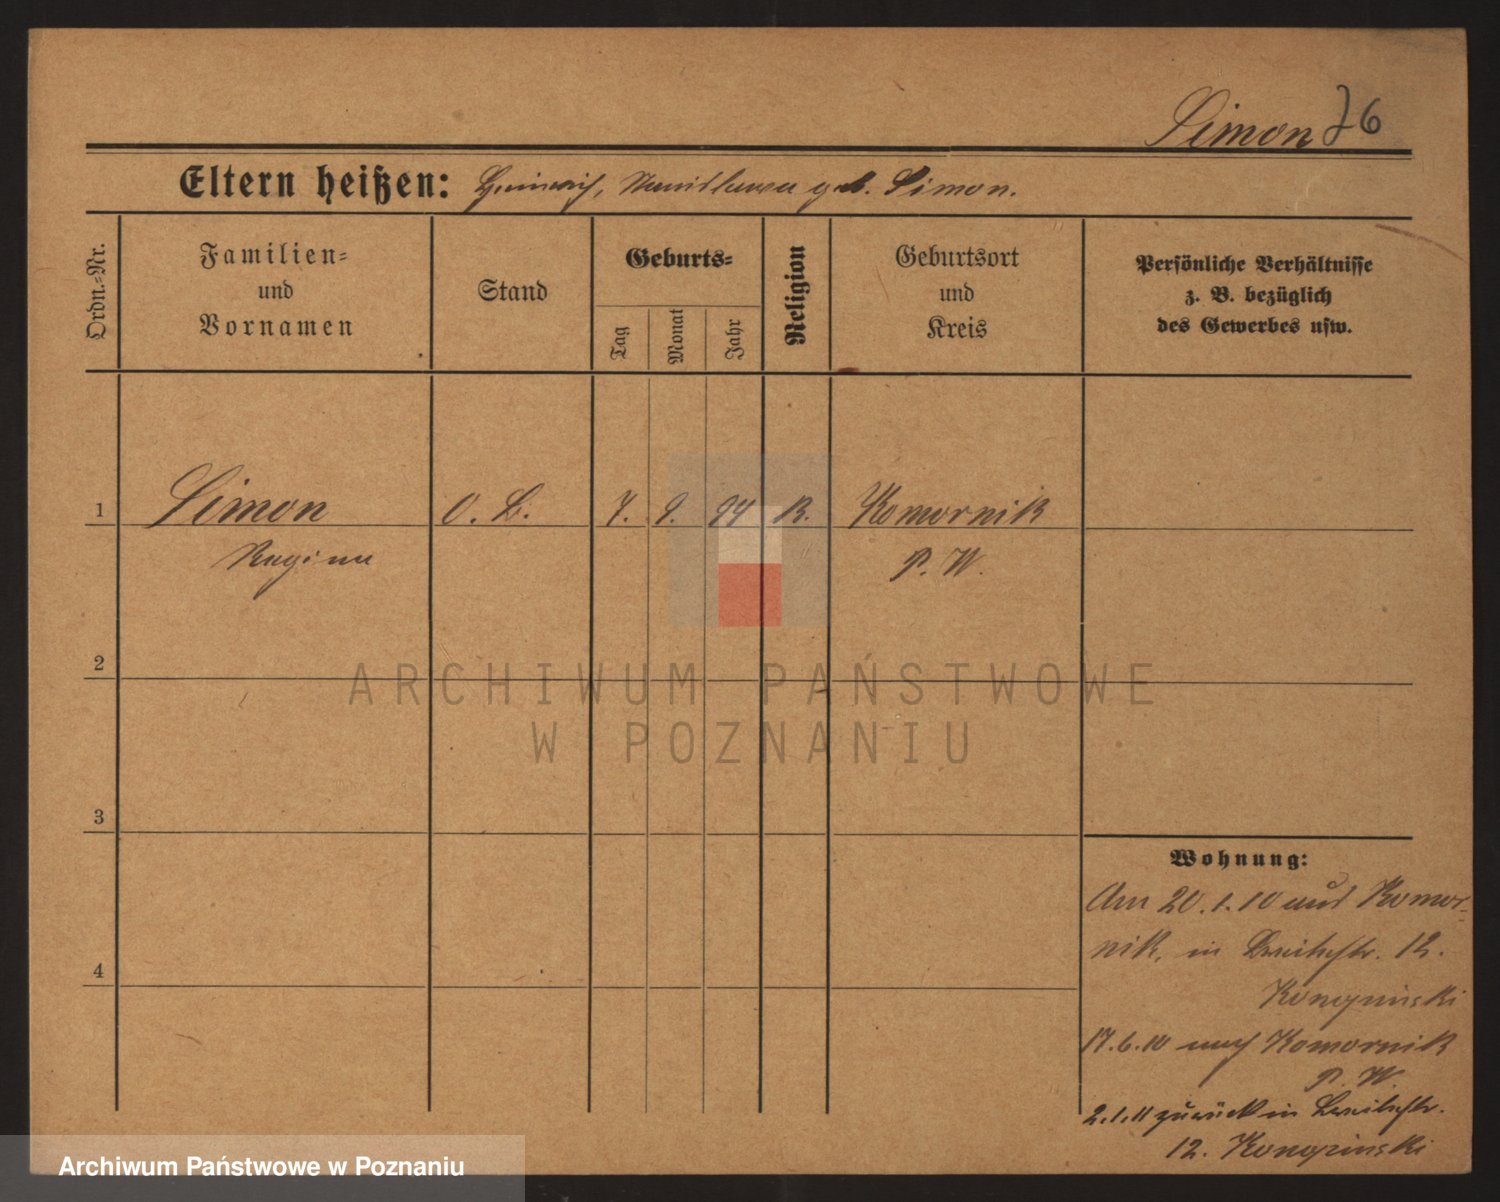 Simon 76
Eltern heißen: Heinrich, Stanislawa geb. Simon.
Ordn.-Nr.
Familien-
und
Vornamen
Stand
Geburts-
Tag
Monat
Jahr
Religion
Geburtsort
und
Kreis
Persönliche Verhältnisse
z. B. bezüglich
des Gewerbes usw.
1 Simon O. B. 7. 9. 94 K. Komornik
Regina P. W.
2
3
4
Wohnung:
Am 20.1.10 aus Komor-
nik, in Breitestr. 12.
17.6.10 nach Komornik
P. W.
2.1.11 zurück in Breitestr.
12.
ARCHIWUM PAŃSTWOWE
W POZNANIU
Archiwum Państwowe w Poznaniu